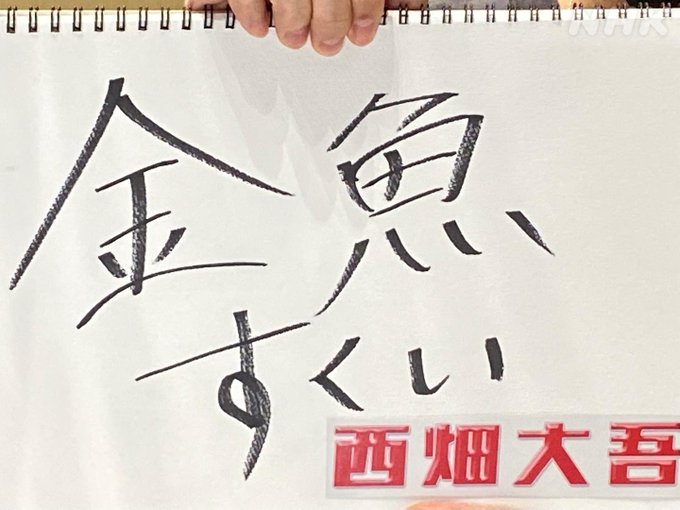 NHK
金魚
すくい
西畑大吾